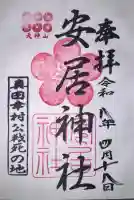 奉拝
令和八年四月十八日
安居神社
天神山
真田幸村公戦死の地